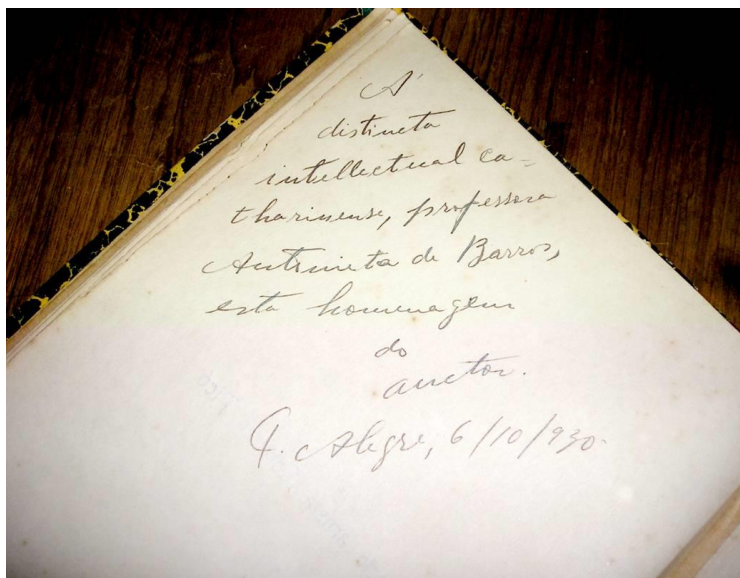 A'
distincta
intellectual ca-
tharinense, professora
Antonieta de Barros,
esta homenagem
do
auctor.
P. Alegre, 6/10/930.